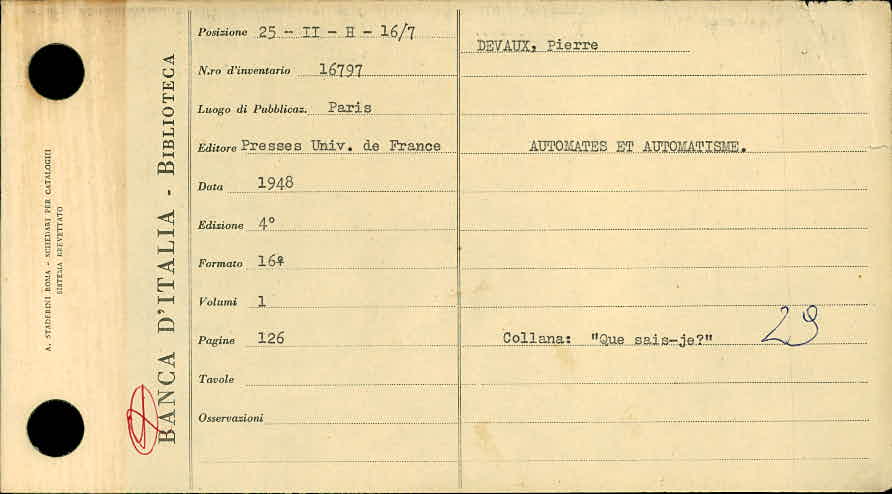 Posizione 25 -- II - H - 16/7
N.ro d'inventario 16797
Luogo di Pubblicaz. Paris
Editore Presses Univ. de France
Data 1948
Edizione 4°
Formato 16º
Volumi 1
Pagine 126
Tavole
Osservazioni
DEVAUX, Pierre
AUTOMATES ET AUTOMATISME.
Collana: "Que sais-je?" 29
BANCA D'ITALIA - BIBLIOTECA
A. STADERINI ROMA - SCHEDARI PER CATALOGHI
SISTEMA BREVETTATO